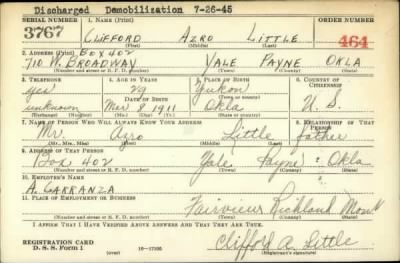 Discharged Demobilization 7-26-45
SERIAL NUMBER 1. NAME (Print) ORDER NUMBER
3767 CLIFFORD AZRO LITTLE 464
(First) (Middle) (Last)
2. ADDRESS (Print) BOX 402
710 W. BROADWAY YALE PAYNE OKLA
(Number and street or R. F. D. number) (Town) (County) (State)
3. TELEPHONE 4. AGE IN YEARS 5. PLACE OF BIRTH 6. COUNTRY OF CITIZENSHIP
yes 29 Yukon
DATE OF BIRTH (Town or county)
unknown Mar 8 1911 Okla U. S.
(Mo.) (Day) (Yr.) (State or country)
7. NAME OF PERSON WHO WILL ALWAYS KNOW YOUR ADDRESS 8. RELATIONSHIP OF THAT PERSON
Mr. Azro Little father
(Mr., Mrs., Miss) (First) (Middle) (Last)
9. ADDRESS OF THAT PERSON
Box 402 Yale Payne Okla
(Number and street or R. F. D. number) (Town) (County) (State)
10. EMPLOYER'S NAME
A. CARRANZA
11. PLACE OF EMPLOYMENT OR BUSINESS
Fairview Richland Mont
(Number and street or R. F. D. number) (Town) (County) (State)
I AFFIRM THAT I HAVE VERIFIED ABOVE ANSWERS AND THAT THEY ARE TRUE.
REGISTRATION CARD
D. S. S. Form 1 (over) Clifford A. Little
(Registrant's signature)